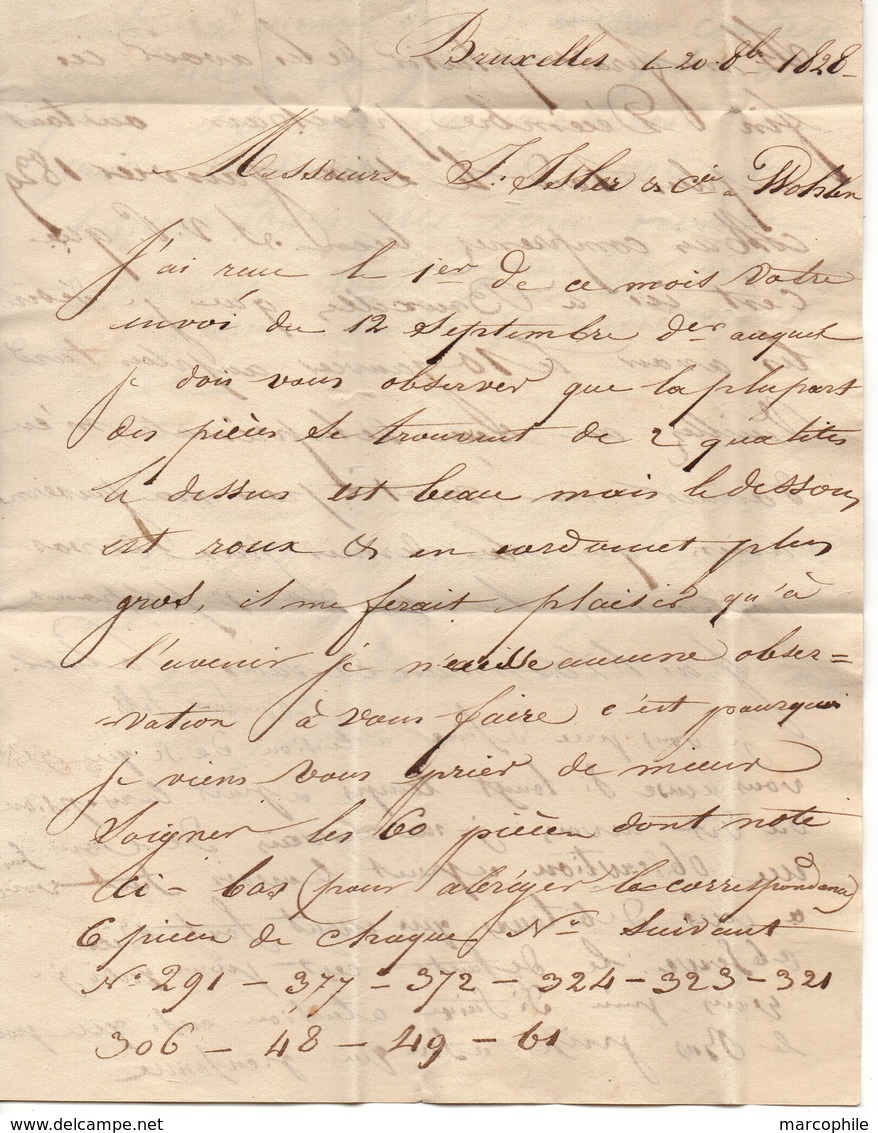 Bruxelles le 20 8bre 1828
Messieurs J. Isler & Cie à Wohlen
J'ai reçu le 1er de ce mois votre
envoi du 12 Septembre der auquel
je dois vous observer que la plupart
des pièces se trouvent de 2 qualités
le dessus est beau mais le dessous
est roux & en cordonnet plus
gros, il me ferait plaisir qu'à
l'avenir je n'eusse aucune obser=
vation à vous faire c'est pourquoi
je viens vous prier de mieux
Soigner les 60 pièces dont note
ci-bas (pour abréger la correspondance)
6 pièces de chaque No Suivant
No 291 - 377 - 372 - 324 - 323 - 321
306 - 48 - 49 - 61
marcophile